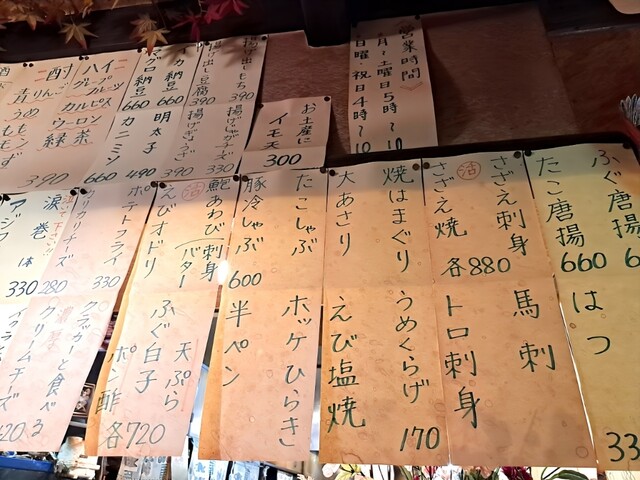 営業時間
月~土曜日5時~10
日曜・祝日4時~10
お土産に
イモ天
300
揚げ出しもち
揚げ出し豆腐
390
揚げじゃが子天
揚げぎょうざ
390
330
イカ納豆
マグロ納豆
660
660
明太子
カニミソ
490
660
ハイ
酎
グレープフルーツ
カルピス
ウーロン
緑茶
青りんご
うめ
もも
390
ふぐ唐揚
たこ唐揚
660
はつ
33
さざえ刺身
活
さざえ焼
各880
馬刺
トロ刺身
焼はまぐり
大あさり
うめくらげ
170
えび塩焼
たこしゃぶ
豚冷しゃぶ
600
ホッケひらき
半ペン
活
鮑あわび刺身
バター
えびオドリ
天ぷら
ふぐ白子
ポン酢
各720
ポテトフライ
330
クラッカーと食べる
クリームチーズ
涙巻
280
アジフ
1体
330
420